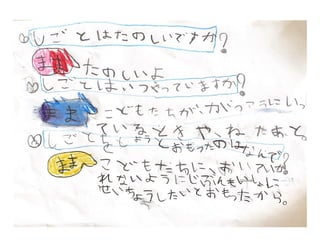 しごとはたのしいですか?
まま たのしいよ
しごとはいつやっていますか?
まま こどもたちが、がっこうにいっ
ているときや、ねたあと。
しごとをしようとおもったのはなんで?
まま こどもたちに、おいていか
れないようにじぶんもいっしょに
せいちょうしたいとおもったから。